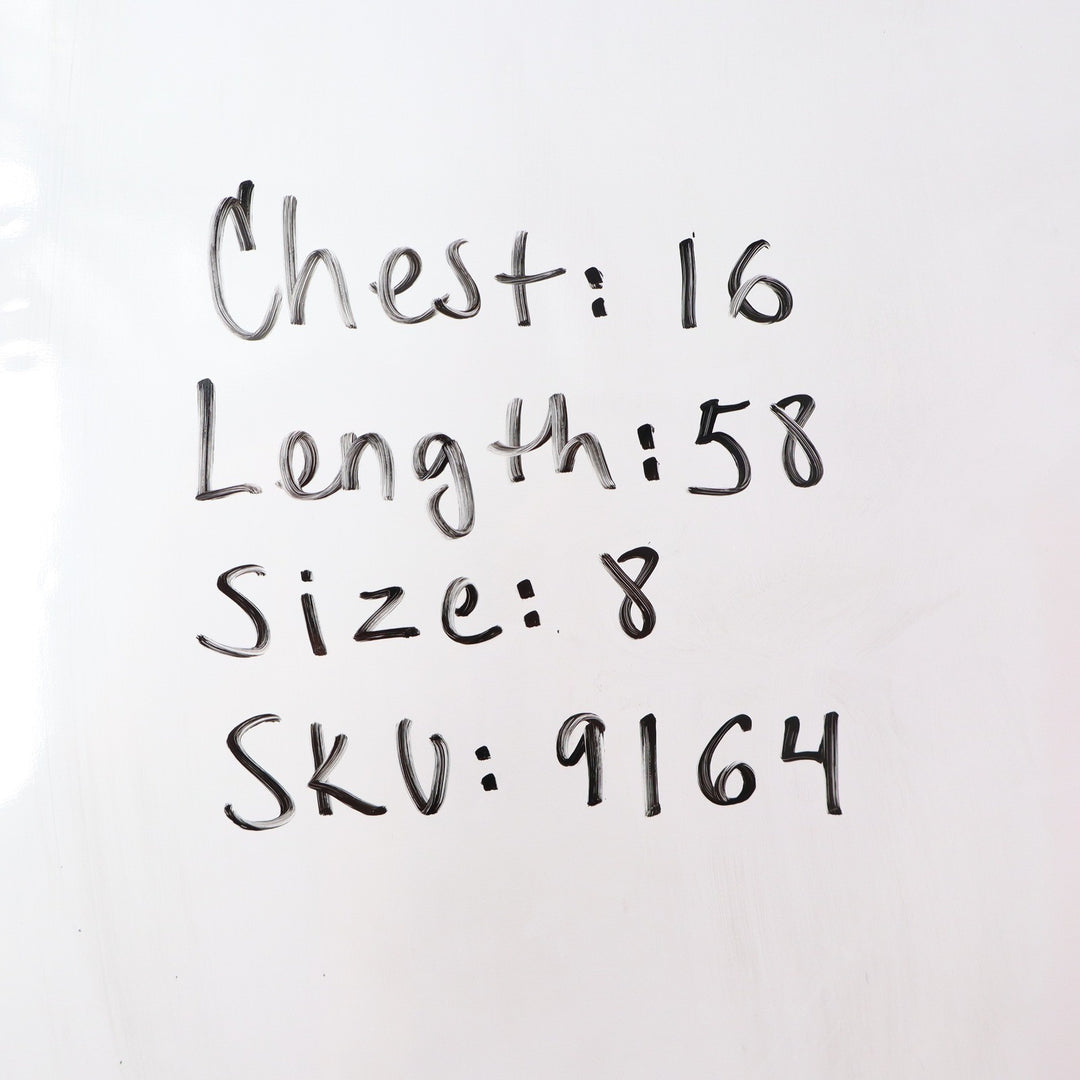 Chest: 16
Length: 58
Size: 8
SKU: 9164